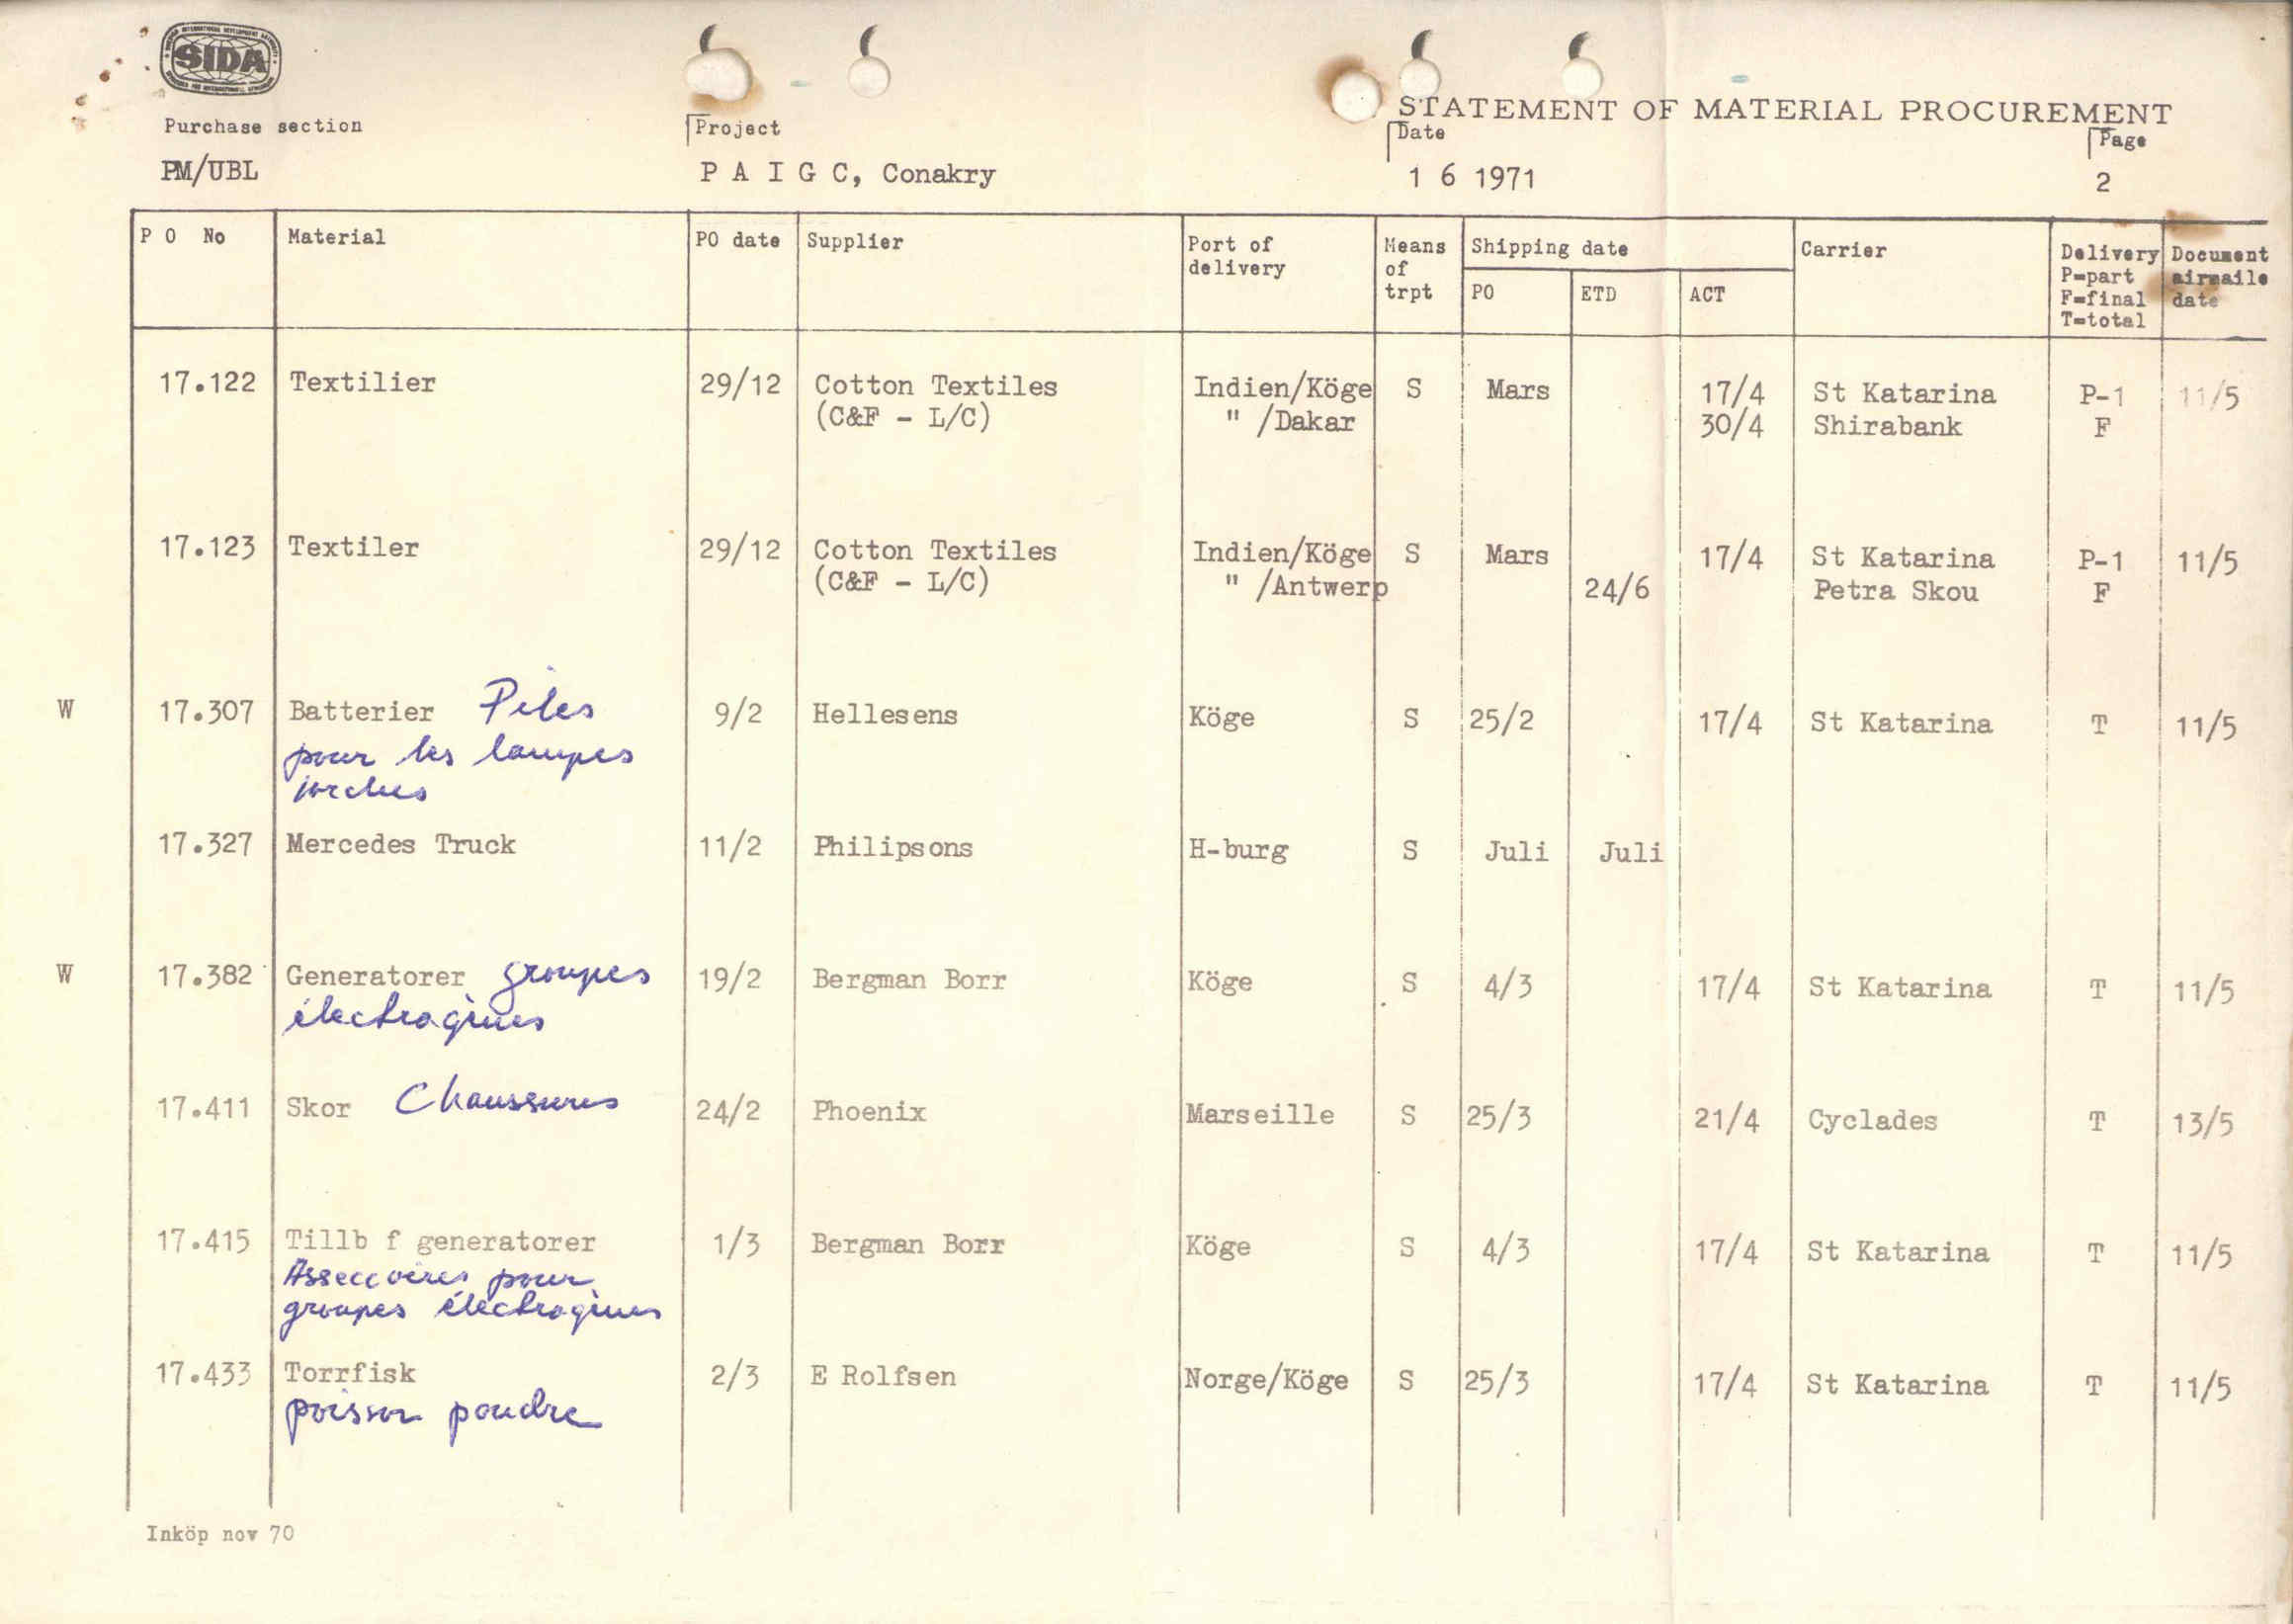 SIDA
STATEMENT OF MATERIAL PROCUREMENT
Purchase section Project Date Page
PM/UBL P A I G C, Conakry 1 6 1971 2
P O No Material PO date Supplier Port of delivery Means of trpt Shipping date PO ETD ACT Carrier Delivery P=part F=final T=total Document airmaile date
17.122 Textilier 29/12 Cotton Textiles Indien/Köge S Mars 17/4 St Katarina P-1 11/5
(C&F - L/C) " /Dakar 30/4 Shirabank F
17.123 Textiler 29/12 Cotton Textiles Indien/Köge S Mars 17/4 St Katarina P-1 11/5
(C&F - L/C) " /Antwerp 24/6 Petra Skou F
W 17.307 Batterier Piles 9/2 Hellesens Köge S 25/2 17/4 St Katarina T 11/5
pour les lampes
torches
17.327 Mercedes Truck 11/2 Philipsons H-burg S Juli Juli
W 17.382 Generatorer groupes 19/2 Bergman Borr Köge S 4/3 17/4 St Katarina T 11/5
électrogènes
17.411 Skor Chaussures 24/2 Phoenix Marseille S 25/3 21/4 Cyclades T 13/5
17.415 Tillb f generatorer 1/3 Bergman Borr Köge S 4/3 17/4 St Katarina T 11/5
Asseccoires pour
groupes électrogènes
17.433 Torrfisk 2/3 E Rolfsen Norge/Köge S 25/3 17/4 St Katarina T 11/5
poisson poudre
Inköp nov 70